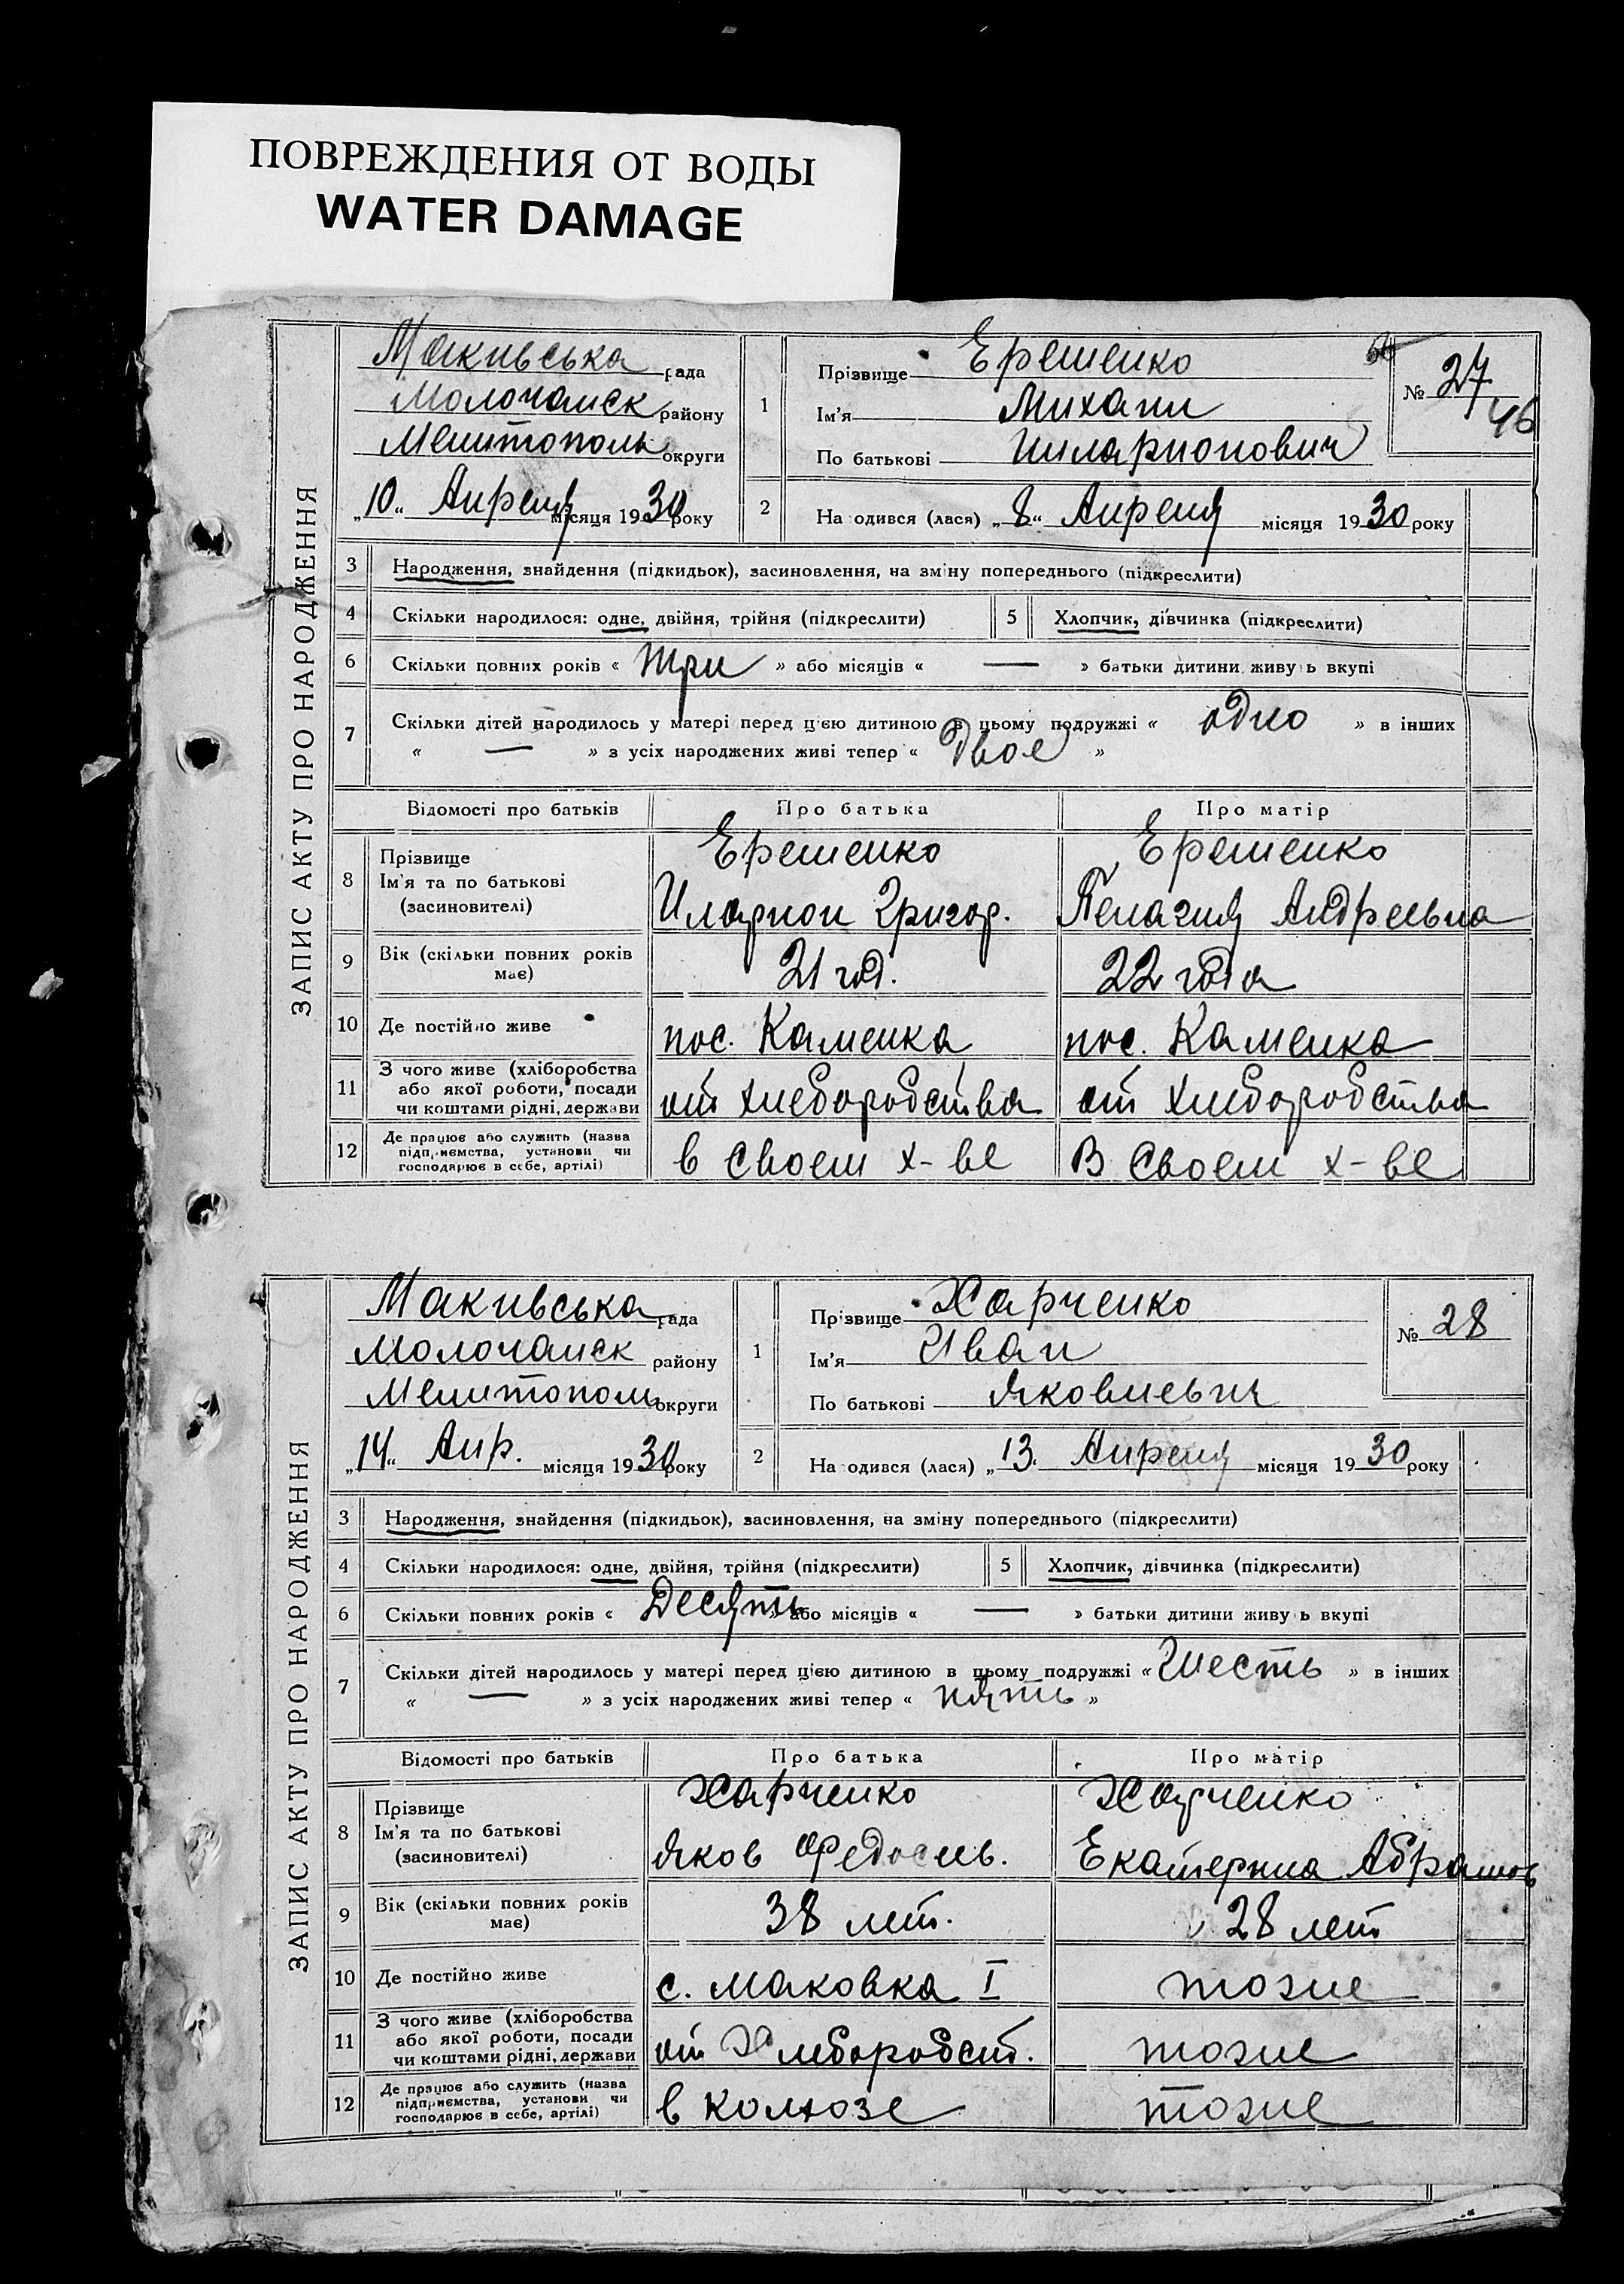 ПОВРЕЖДЕНИЯ ОТ ВОДЫ
WATER DAMAGE
ЗАПИС АКТУ ПРО НАРОДЖЕННЯ
Макивська рада
Молочанск району
Мелитополь округи
„10“ Апреля місяця 1930 року
1
Прізвище Ерешенко
Ім'я Михаил
По батькові Иларионович
№ 27
46
2
На одився (лася) „8“ Апреля місяця 1930 року
3 Народження, знайдення (підкидьок), засиновлення, на зміну попереднього (підкреслити)
4 Скільки народилося: одне, двійня, трійня (підкреслити) 5 Хлопчик, дівчинка (підкреслити)
6 Скільки повних років « три » або місяців « — » батьки дитини живу ь вкупі
7 Скільки дітей народилось у матері перед цією дитиною в цьому подружжі « одно » в інших
« — » з усіх народжених живі тепер « двое »
Відомості про батьків Про батька Про матір
8 Прізвище Ім'я та по батькові (засиновителі)
Ерешенко Ерешенко
Иларион Григор. Пелагия Андреевна
9 Вік (скільки повних років має) 21 год. 22 года
10 Де постійно живе пос. Каменка пос. Каменка
11 З чого живе (хліборобства або якої роботи, посади чи коштами рідні, держави от хлеборобства от хлеборобства
12 Де працює або служить (назва підприємства, установи чи господарює в себе, артілі) в своем х-ве В своем х-ве
ЗАПИС АКТУ ПРО НАРОДЖЕННЯ
Макивська рада
Молочанск району
Мелитополь округи
„14“ Апр. місяця 1930 року
1
Прізвище Харченко
Ім'я Иван
По батькові Яковлевич
№ 28
2
На одився (лася) „13“ Апреля місяця 1930 року
3 Народження, знайдення (підкидьок), засиновлення, на зміну попереднього (підкреслити)
4 Скільки народилося: одне, двійня, трійня (підкреслити) 5 Хлопчик, дівчинка (підкреслити)
6 Скільки повних років « Десять » або місяців « — » батьки дитини живу ь вкупі
7 Скільки дітей народилось у матері перед цією дитиною в цьому подружжі « шесть » в інших
« — » з усіх народжених живі тепер « пять »
Відомості про батьків Про батька Про матір
8 Прізвище Ім'я та по батькові (засиновителі)
Харченко Харченко
Яков Федосеев. Екатерина Абрамов
9 Вік (скільки повних років має) 38 лет. 28 лет
10 Де постійно живе с. Маковка I тоже
11 З чого живе (хліборобства або якої роботи, посади чи коштами рідні, держави от Хлеборобст. тоже
12 Де працює або служить (назва підприємства, установи чи господарює в себе, артілі) в колхозе тоже